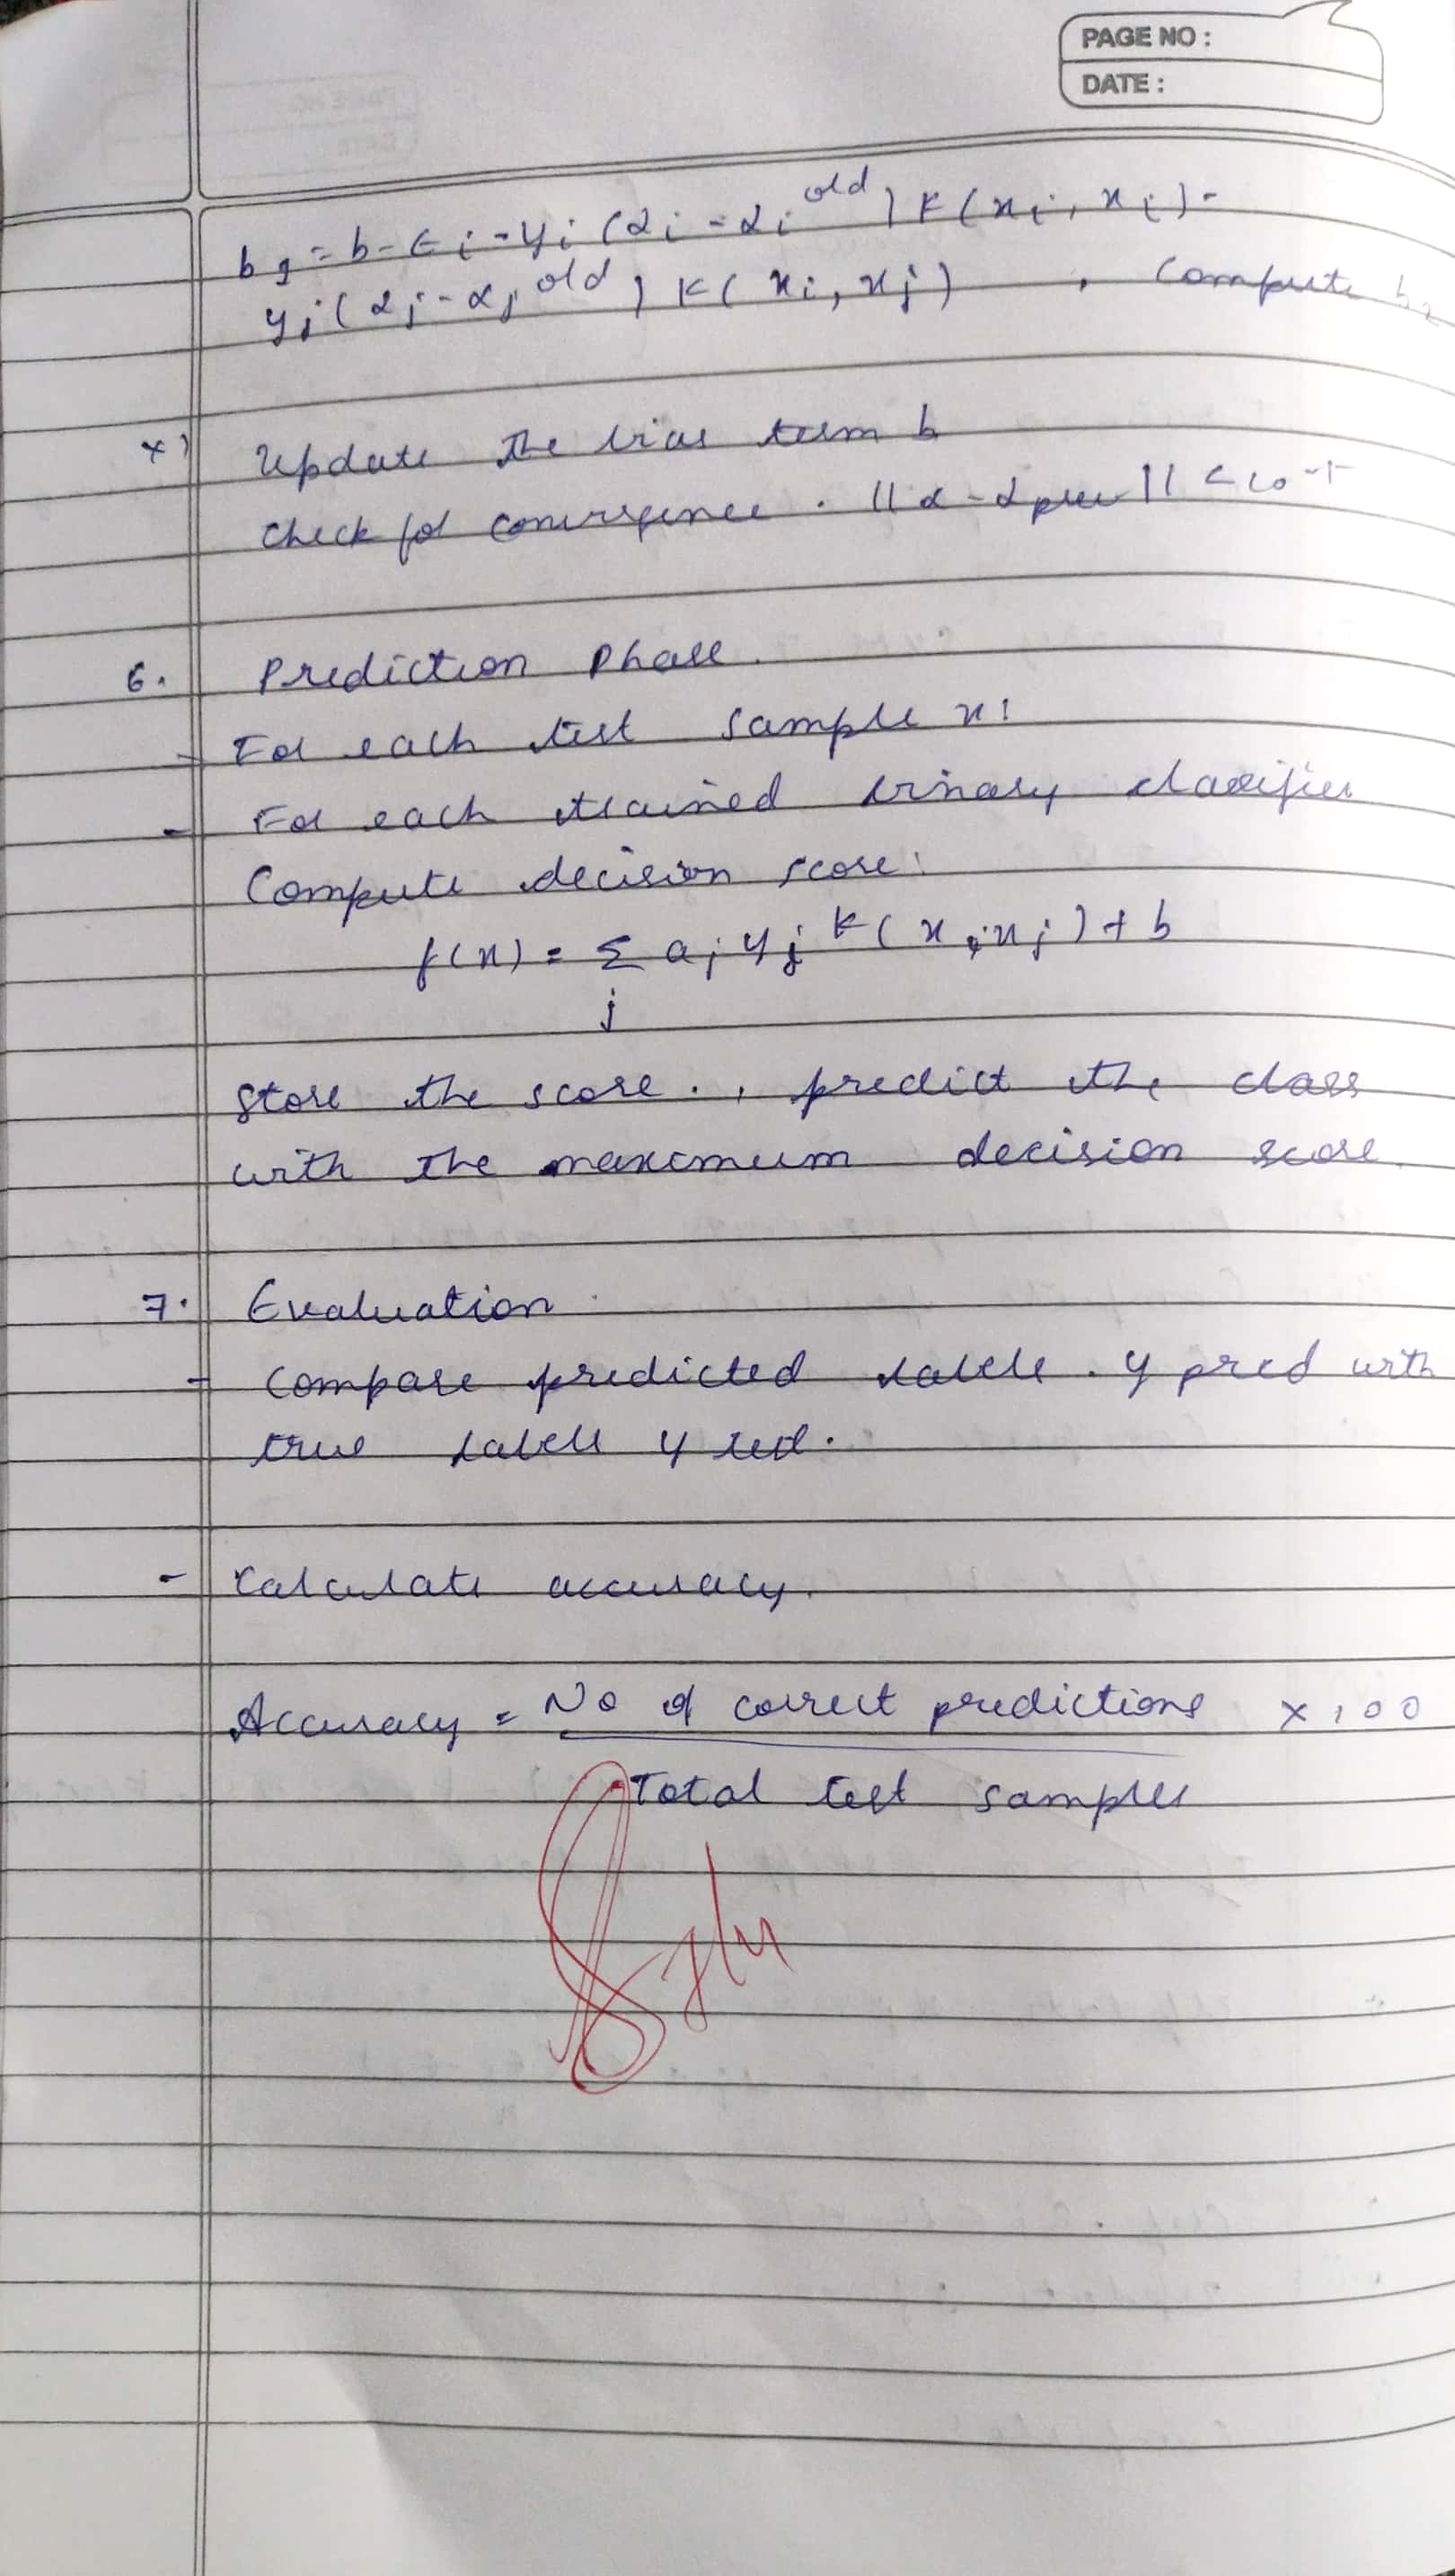 PAGE NO :
DATE :
b1 = b - Ei - yi (αi - αi old) K(xi, xi) -
yj (αj - αj old) K(xi, xj) , Compute b2
x) Update the bias term b
Check for convergence . ||α - αprev|| < 10
6. Prediction Phase.
- For each test sample x:
- For each trained binary classifier
Compute decision score:
f(x) = Σ aj yj K(x, xj) + b
j
Store the score . , predict the class
with the maximum decision score.
7. Evaluation
- Compare predicted labels . y pred with
true labels y test.
- Calculate accuracy.
Accuracy = No of correct predictions × 100
Total test samples